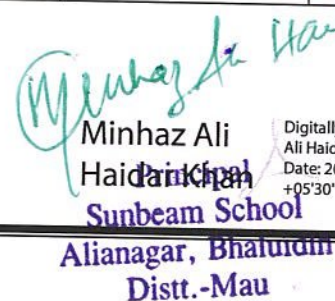 Minhaz Ali
Minhaz Ali
Haidar Khan
Digitall
Ali Haid
Date: 20
+05'30'
Principal
Sunbeam School
Alianagar,
Distt.-Mau